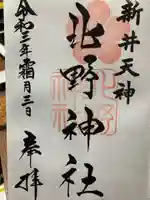 新井天神
北野神社
奉拝
令和三年霜月三日